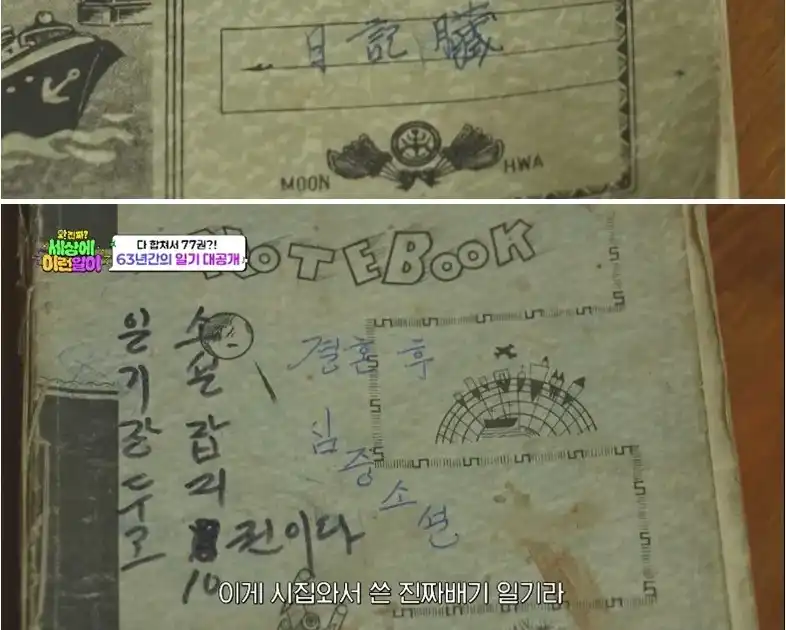 日記臟
MOON HWA
와! 진짜?
세상에
이런일이
다 합쳐서 77권?!
63년간의 일기 대공개
NOTEBOOK
결혼 후
심중
소션
일기랄두고
소설랍리
권이다
10
이게 시집와서 쓴 진짜배기 일기라